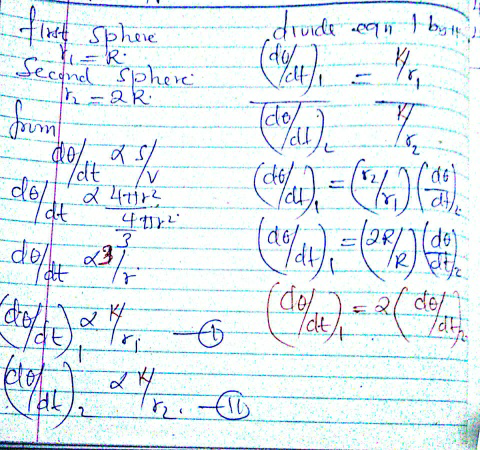 first sphere
r₁ = R.
Second Sphere.
r₂ = 2R.
from
dθ/dt α S/V
dθ/dt α 4πr²/(4πr²/3)
dθ/dt α 3/r
(dθ/dt)₁ α K/r₁ — (I)
(dθ/dt)₂ α K/r₂. — (II)
divide eqn 1 by II.
(dθ/dt)₁ / (dθ/dt)₂ = (K/r₁) / (K/r₂)
(dθ/dt)₁ = (r₂/r₁) (dθ/dt)₂
(dθ/dt)₁ = (2R/R) (dθ/dt)₂
(dθ/dt)₁ = 2 (dθ/dt)₂